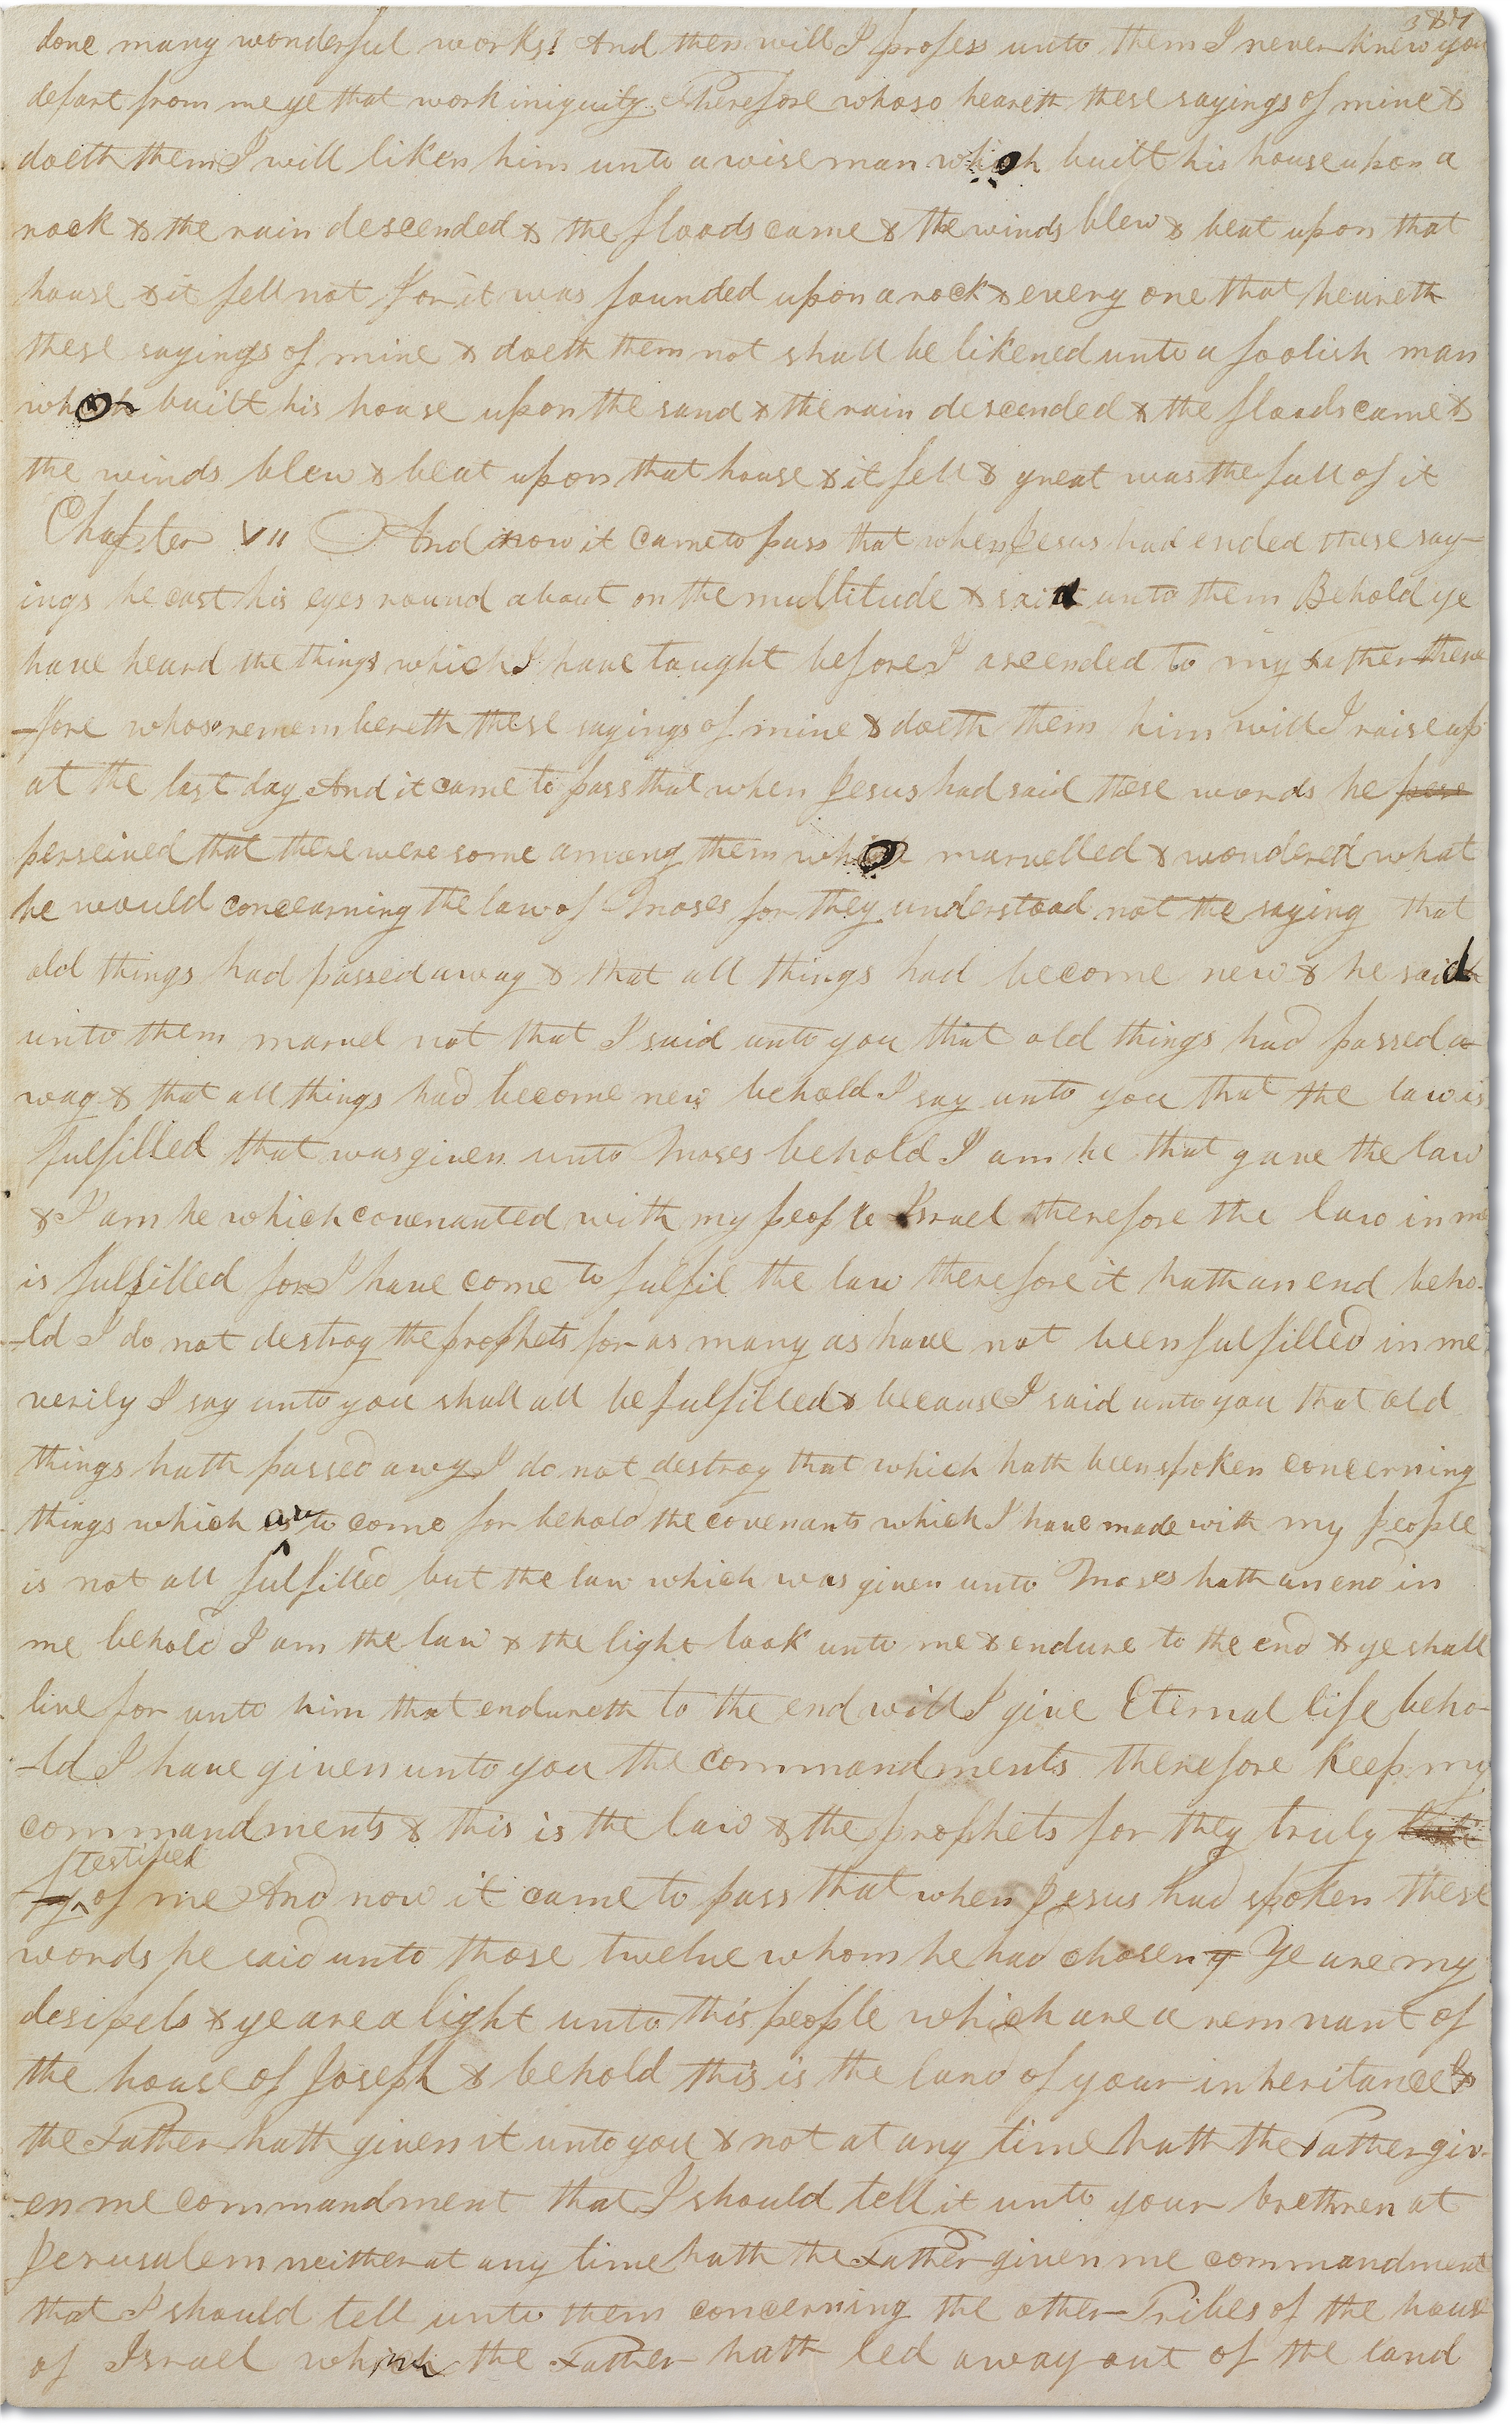 387
done many wonderful works! And then will I profess unto them I never knew you
depart from me ye that work iniquity Therefore whoso heareth these sayings of mine &
doeth them I will liken him unto a wise man who built his house upon a
rock & the rain descended & the floods came & the winds blew & beat upon that
house & it fell not for it was founded upon a rock & every one that heareth
these sayings of mine & doeth them not shall be likened unto a foolish man
who built his house upon the sand & the rain descended & the floods came &
the winds blew & beat upon that house & it fell & great was the fall of it
Chapter VII And now it came to pass that when Jesus had ended these say-
ings he cast his eyes round about on the multitude & said unto them Behold ye
have heard the things which I have taught before I ascended to my Father there
-fore whoso remembereth these sayings of mine & doeth them him will I raise up
at the last day And it came to pass that when Jesus had said these words he perse
perseived that there were some among them who marvelled & wondered what
he would concearning the law of Moses for they understood not the saying that
old things had passed away & that all things had become new & he said
unto them marvel not that I said unto you that old things had passed a-
way & that all things had become new behold I say unto you that the law is
fulfilled that was given unto Moses behold I am he that gave the law
& I am he which covenanted with my people Israel therefore the law in me
is fulfilled for I have come to fulfil the law therefore it hath an end beho-
-ld I do not destroy the prophets for as many as have not been fulfilled in me
verily I say unto you shall all be fulfilled & because I said unto you that old
things hath passed awy I do not destroy that which hath been spoken concerning
things which are to come for behold the covenants which I have made with my people
is not all fulfilled but the law which was given unto Moses hath an end in
me behold I am the law & the light look unto me & endure to the end & ye shall
live for unto him that endureth to the end will I give Eternal life beho-
-ld I have given unto you the commandments therefore keep my
commandments & this is the law & the prophets for they truly
testified
of me And now it came to pass that when Jesus had spoken these
words he said unto those twelve whom he had chosen y Ye are my
desipels & ye are a light unto this people which are a remnant of
the house of Joseph & behold this is the land of your inheritance &
the Father hath given it unto you & not at any time hath the Father giv-
-en me commandment that I should tell it unto your brethren at
Jerusalem neither at any time hath the Father given me commandment
that I should tell unto them concerning the other Tribes of the house
of Israel whom the Father hath led away out of the land